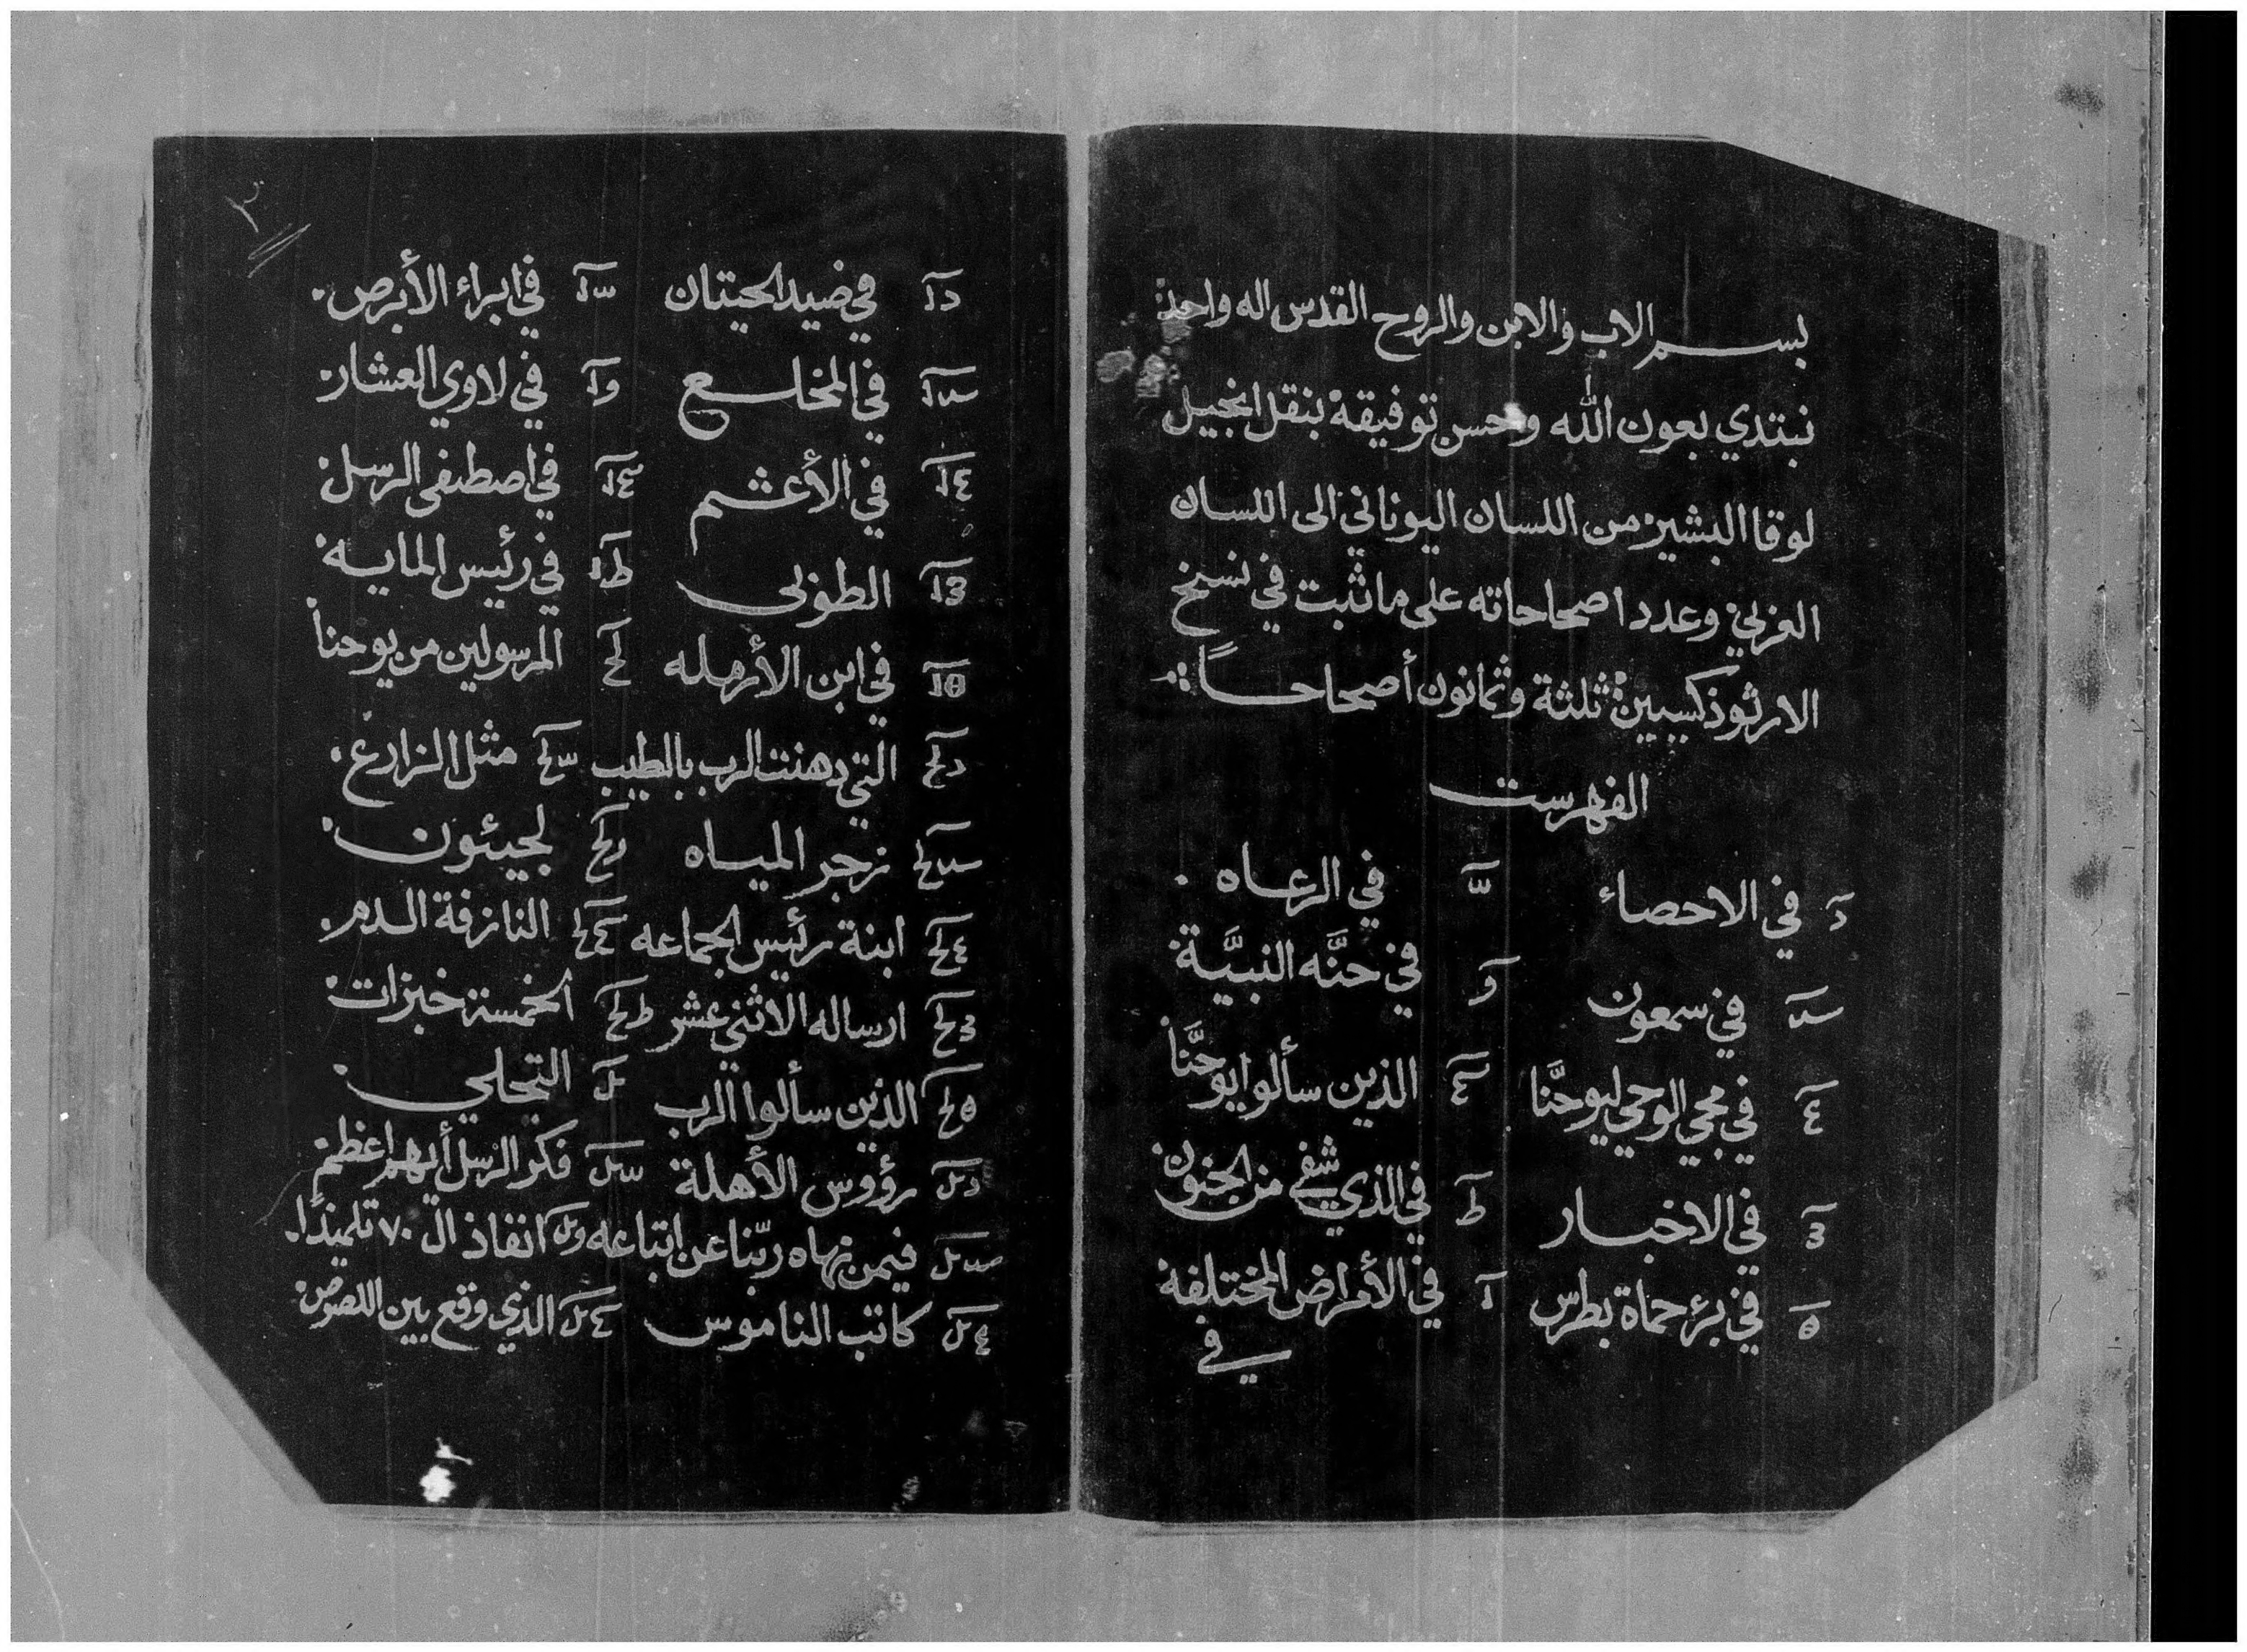 بسم الاب والابن والروح القدس اله واحد
نبتدي بعون الله وحسن توفيقه بنقل انجيل
لوقا البشير من اللسان اليوناني الى اللسان
العربي وعدد اصحاحاته على ما ثبت في نسخ
الارثوذكسيين ثلثة وثمانون أصحاحاً
الفهرست
في الاحصاء في الرعاه
في سمعون في حنَّه النبيَّة
في مجي الوحي ليوحنَّا الذين سألوا يوحنَّا
في الاخبار في الذي شفي من الجنون
في برء حماة بطرس في الأمراض المختلفة
في
٢
في صيد الحيتان في ابراء الأبرص
في المخلع في لاوي العشار
في الأعشم في اصطفى الرسل
الطوبى في رئيس المايه
في ابن الأرمله المرسولين من يوحنا
التي دهنت الرب بالطيب مثل الزارع
زجر المياه لجيئون
ابنة رئيس الجماعه النازفة الدم
ارساله الاثني عشر الخمسة خبزات
الذين سألوا الرب التجلي
رؤوس الأهلة فكر الرسل أيهم اعظم
فيمن نهاه ربّنا عن اتباعه انفاذ ال ٧٠ تلميذًا
كاتب الناموس الذي وقع بين اللصوص